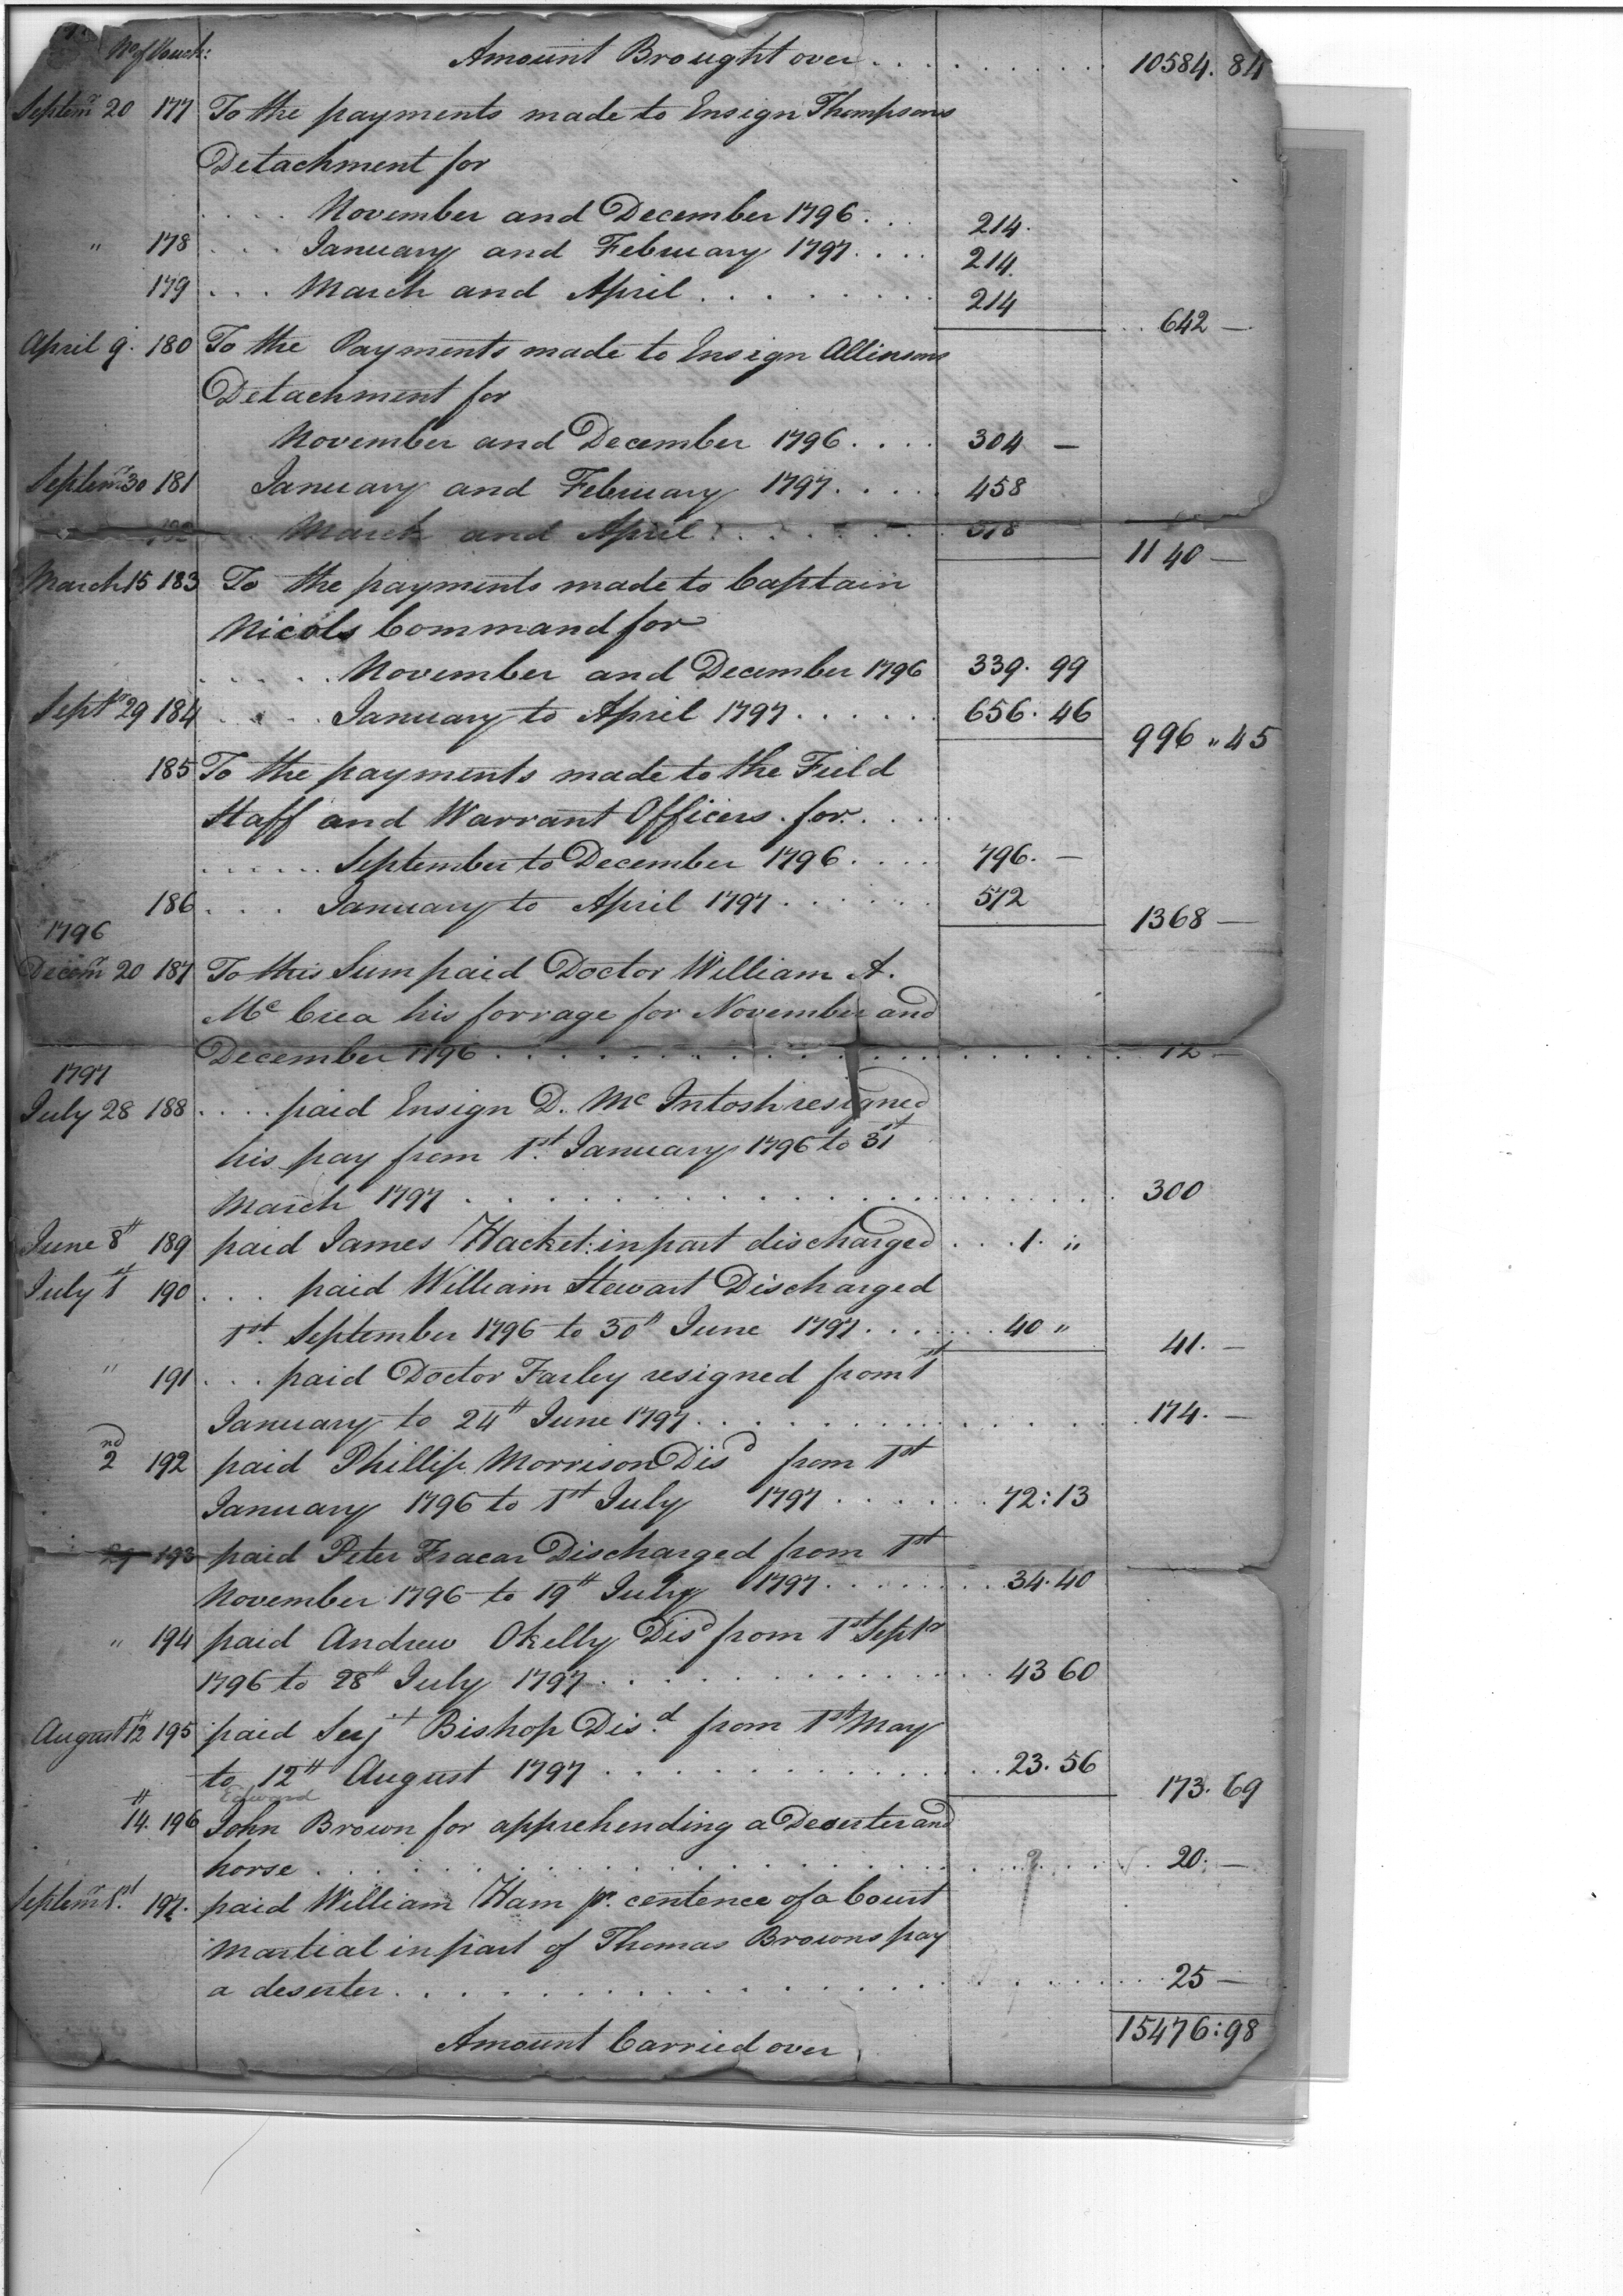 No of Vouch:
Amount Brought over . . . . . . . . . 10584. 84
Septemr 20 177 To the payments made to Ensign Thompsons
Detachment for
. . . . November and December 1796 . . . 214.
" 178 . . . January and February 1797 . . . . 214.
179 . . . March and April . . . . . . . . 214
. . 642 —
April 9. 180 To the Payments made to Ensign Allinsons
Detachment for
November and December 1796 . . . . 304 —
Septemr 30 181 January and February 1797 . . . . . 458
March and April . . . . . . .
1140 —
March 15 183 To the payments made to Captain
Nicols Command for
. . . . . November and December 1796 339. 99
Septr 29 184 . . . . January to April 1797 . . . . . . 656. 46
996 " 45
185 To the payments made to the Field
Staff and Warrant Officers for . . . . .
. . . . . . September to December 1796 . . . . 796. —
186 . . . January to April 1797 . . . . . . 572
1368 —
1796
Decemr 20 187 To this Sum paid Doctor William A.
Mc Crea his forrage for November and
December 1796 . . . . . . . . . . . . . . . . . 12 —
1797
July 28 188 . . . . paid Ensign D. Mc Intosh resigned
his pay from 1st. January 1796 to 31st
March 1797 . . . . . . . . . . . . . . . . . 300
June 8th 189 paid James Hacket: in part discharged . . . . 1. "
July 1st 190 . . . paid William Stewart Discharged
1st. September 1796 to 30th June 1797 . . . . . . . 40 "
41. —
" 191 . . . paid Doctor Farley resigned from 1st
January to 24th June 1797 . . . . . . . . . . . . . 174. —
2nd 192 paid Phillip Morrison Disd from 1st
January 1796 to 1st July 1797 . . . . . . . 72:13
29 193 paid Peter Fracar Discharged from 1st
November 1796 to 19th July 1797 . . . . . . . . 34. 40
" 194 paid Andrew Okelly Disd from 1st Septr
1796 to 28th July 1797 . . . . . . . . . . . . . 43 60
August 12th 195 paid Serjt Bishop Dis.d from 1st May
to 12th August 1797 . . . . . . . . . . . . . 23. 56
173. 69
Edward
14th. 196 John Brown for apprehending a Deserter and
horse . . . . . . . . . . . . . . . . . . 20. —
Septemr 1st. 197. paid William Ham pr. centence of a Court
Martial in part of Thomas Browns pay
a deserter . . . . . . . . . . . . . . . . . 25 —
15476:98
Amount Carried over